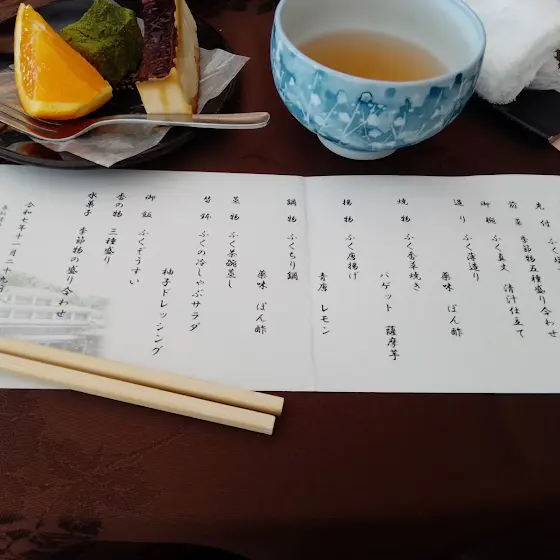 先付 ふく
前菜 季節物五種盛り合わせ
御椀 ふく真丈 清汁仕立て
造り ふく薄造り
薬味 ぽん酢
焼物 ふく香草焼き
バゲット 薩摩芋
揚物 ふく唐揚げ
青唐 レモン
鍋物 ふくちり鍋
薬味 ぽん酢
蒸物 ふく茶碗蒸し
替鉢 ふくの冷しゃぶサラダ
柚子ドレッシング
御飯 ふくぞうすい
香の物 三種盛り
水菓子 季節物の盛り合わせ
令和七年十一月二十九日